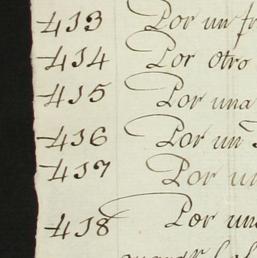 413 Por un
414 Por otro
415 Por una
416 Por un
417 Por
418 Por